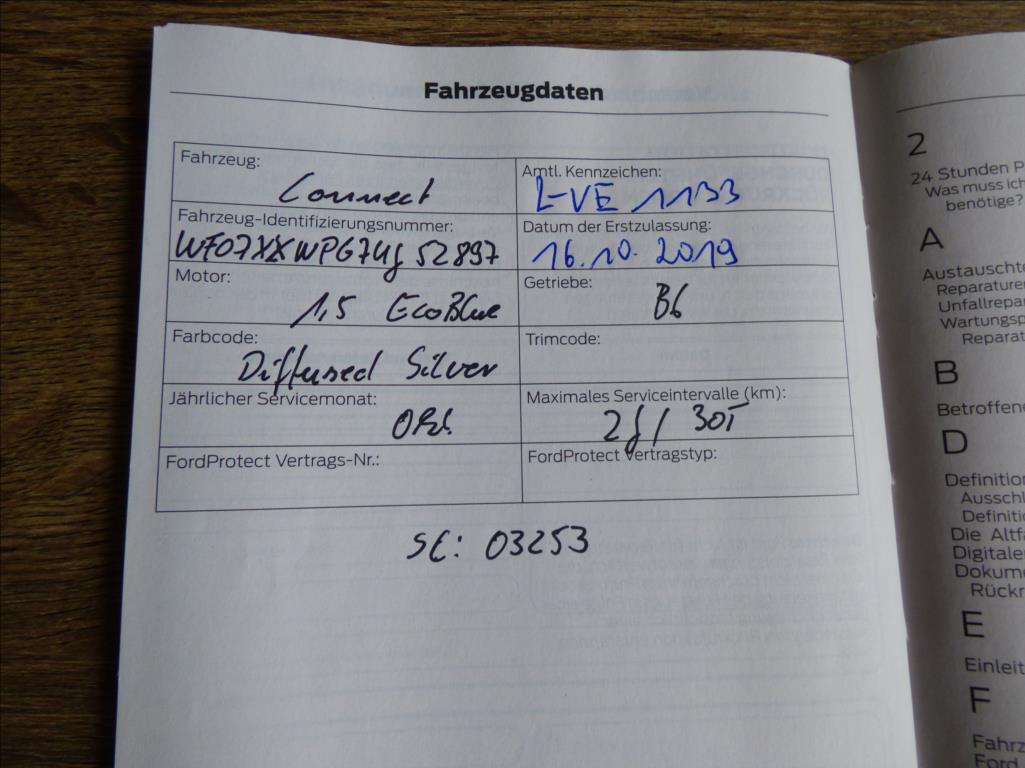 Fahrzeugdaten
Fahrzeug:
Connect
Amtl. Kennzeichen:
L-VE 1133
Fahrzeug-Identifizierungsnummer:
Datum der Erstzulassung:
16.10.2019
Motor:
1,5 EcoBlue
Getriebe:
B6
Farbcode:
Diffused Silver
Trimcode:
Jährlicher Servicemonat:
Okt.
Maximales Serviceintervalle (km):
2J / 30T
FordProtect Vertrags-Nr.:
FordProtect Vertragstyp:
SC: 03253
2
24 Stunden P
Was muss ich
benötige?
A
Austauschte
Reparaturen
Unfallrepa
Wartungsp
Reparat
B
Betroffene
D
Definition
Ausschl
Definitio
Die Altfa
Digitale
Dokume
Rückr
E
Einleit
F
Fahrz
Ford